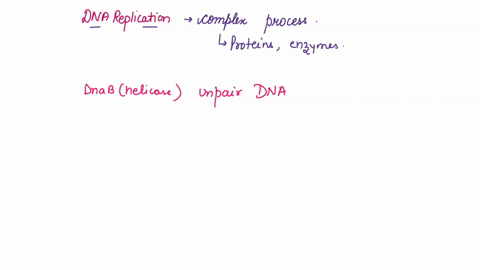 DNA Replication → complex process.
↳ Proteins, enzymes.
DnaB (helicase) unpair DNA